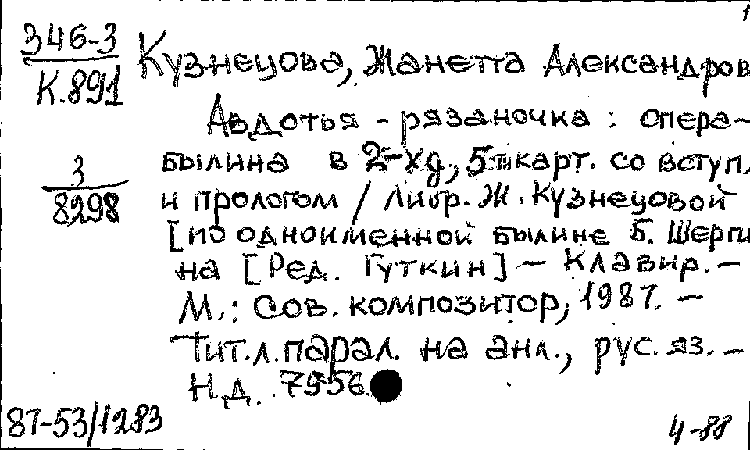 346-3
К.891
Кузнецова, Жанетта Александров
Авдотья - рязаночка : опера-
3
8298
былина в 2-х д., 5-и карт. со вступ.
и прологом / Либр. Ж. Кузнецовой
[по одноименной былине Б. Шерги
на [Ред. Гуткин] - Клавир. -
М.: Сов. композитор, 1987. -
Тит.л.парал. на анл., рус. яз. -
Н.д. 7956
87-53/1283
4-88